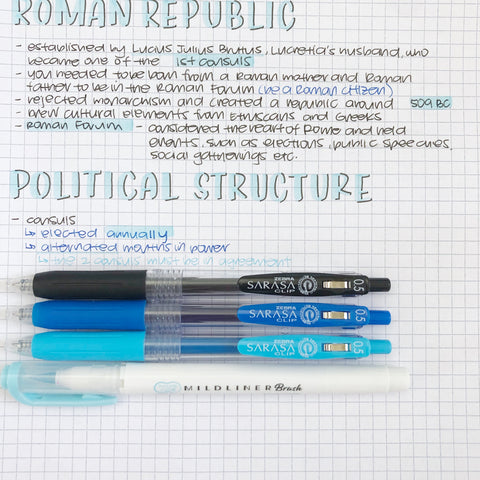 ROMAN REPUBLIC
- established by Lucius Julius Brutus, Lucretia's husband, who
became one of the 1st consuls
- you needed to be born from a Roman mother and Roman
father to be in the Roman Forum (be a Roman citizen)
- rejected monarchism and created a republic around 509 BC
- drew cultural elements from Etruscans and Greeks
- Roman Forum - considered the heart of Rome and held
events, such as elections, public speeches,
social gatherings etc.
POLITICAL STRUCTURE
- consuls
↳ elected annually
↳ alternated months in power
↳ the 2 consuls must be in agreement
ZEBRA
SARASA
CLIP
0.5
ZEBRA
SARASA
CLIP
0.5
ZEBRA
SARASA
CLIP
0.5
MILDLINER Brush